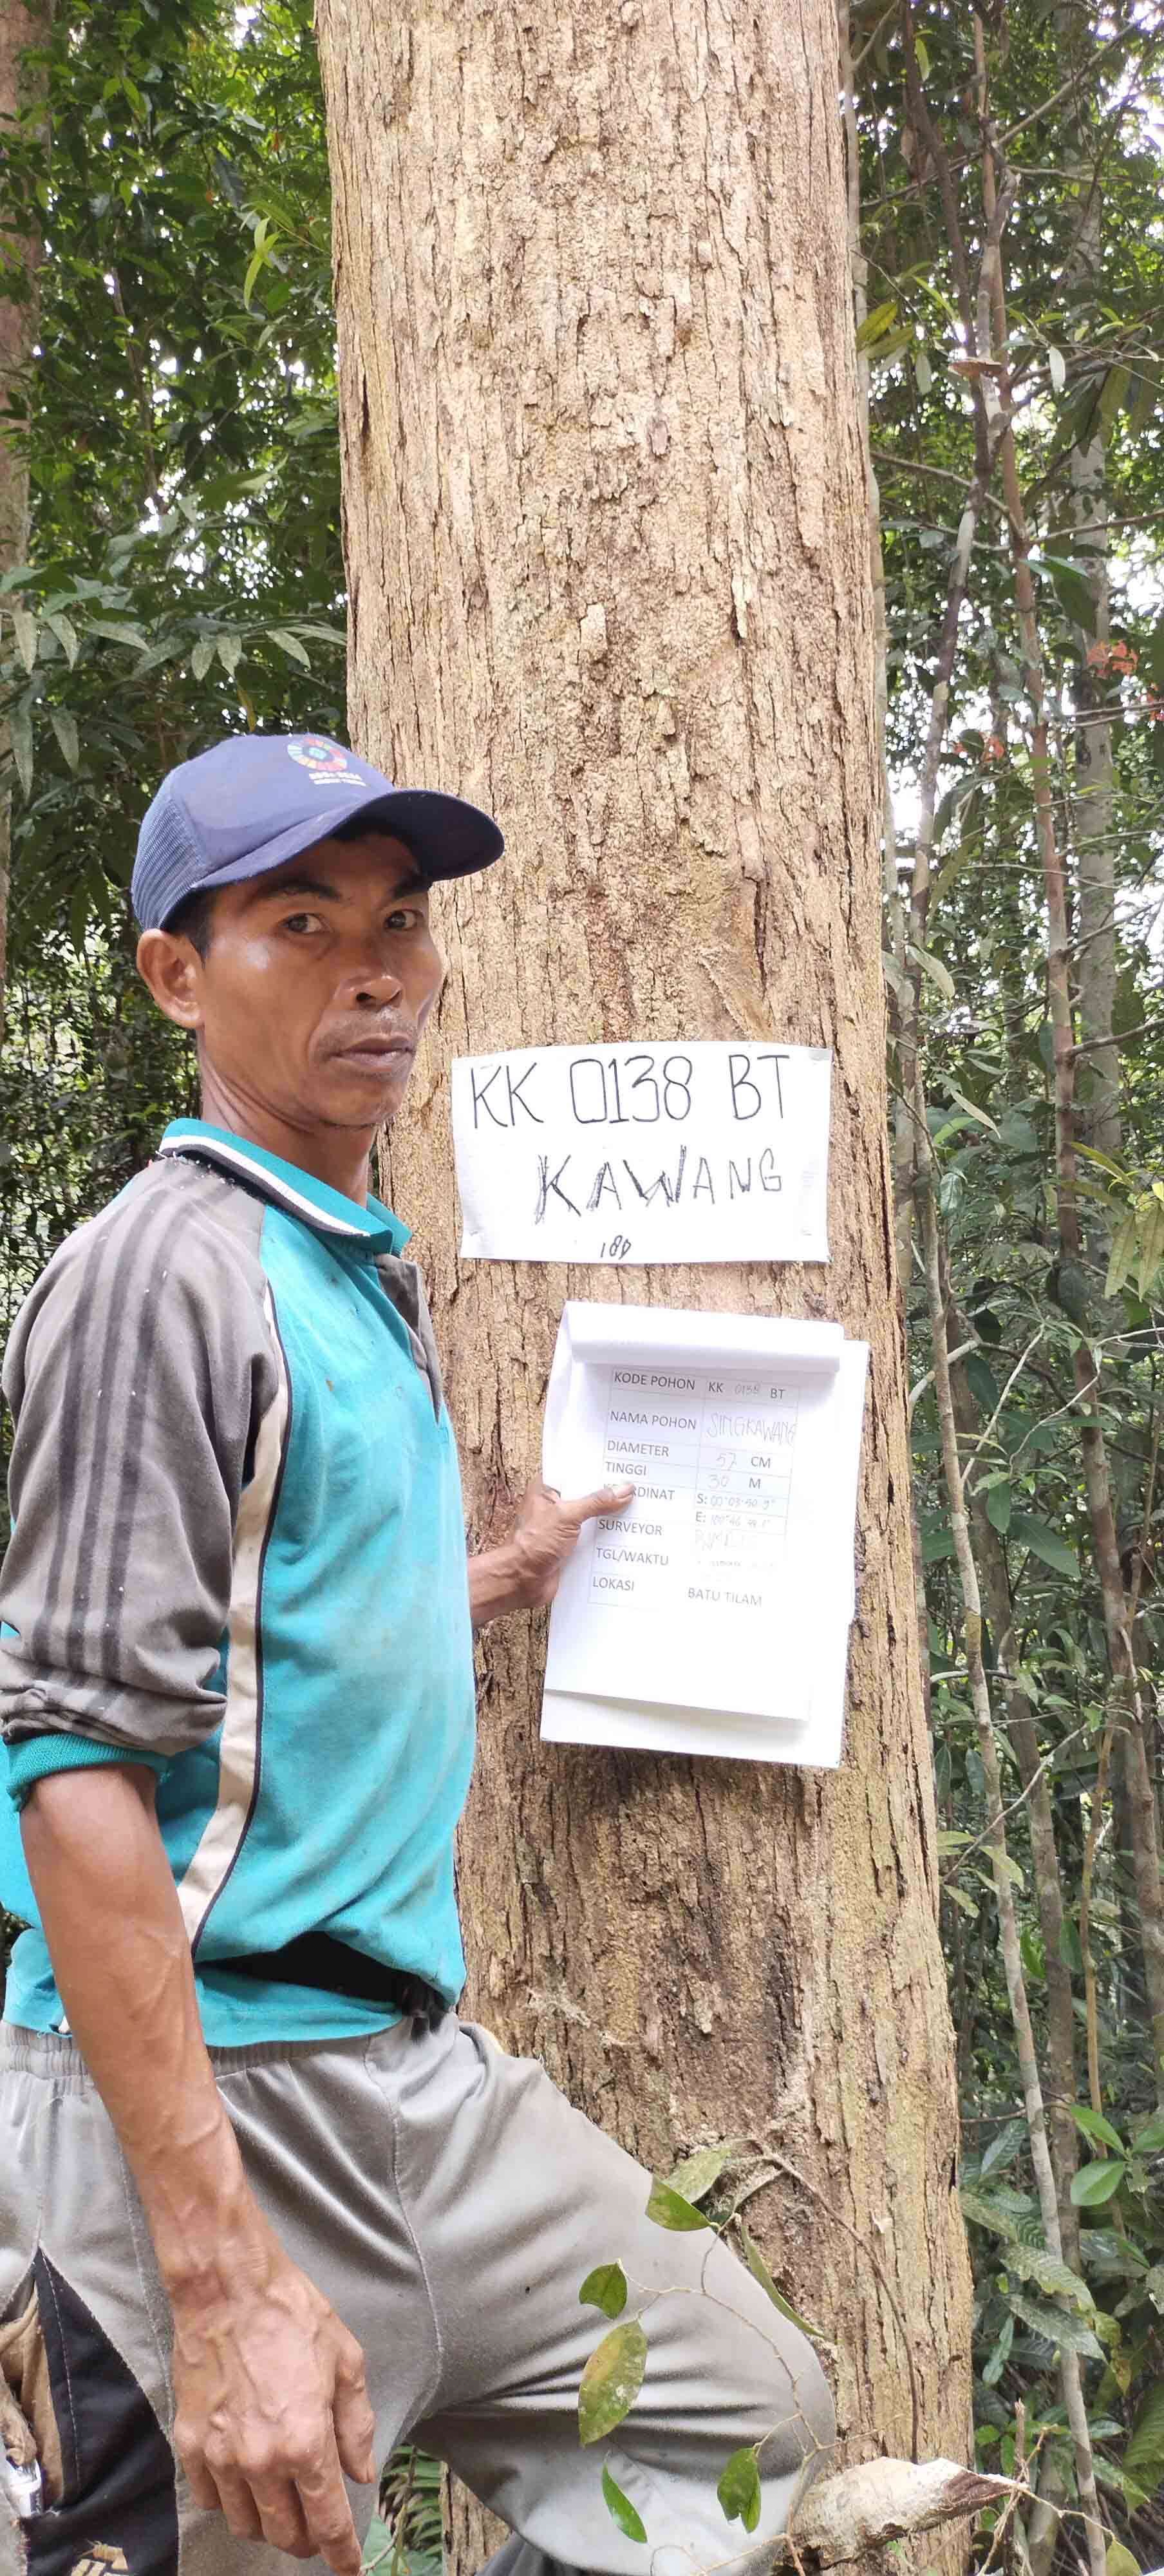 KK 0138 BT
KAWANG
180
KODE POHON KK 0138 BT
NAMA POHON SINGKAWANG
DIAMETER 57 CM
TINGGI 30 M
S:
E:
SURVEYOR
TGL/WAKTU
LOKASI BATU TILAM